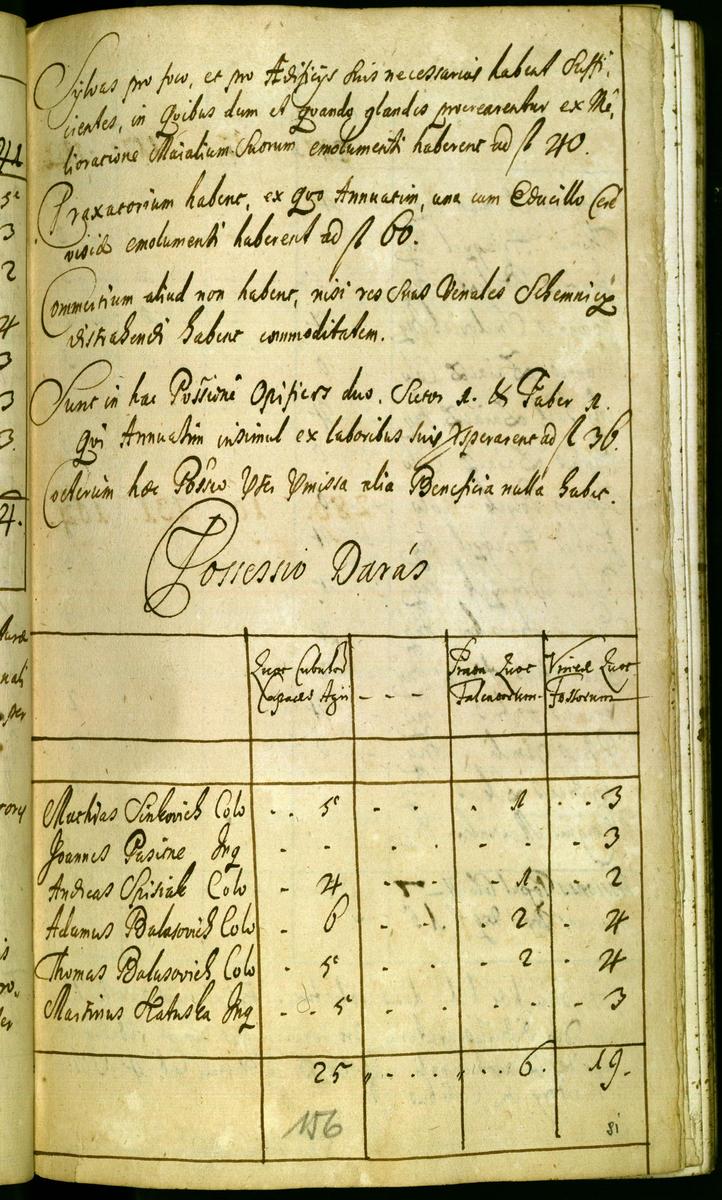 Sylvas pro foco, et pro Ædificijs suis necessarias habent suffi,
cientes, in quibus dum et quando glandes procrearentur ex Me,
lioratione Maialium suorum emolumenti haberent ad f 40.
Praxatorium habent, ex quo Annuatim, una cum Educillo Cere
visiæ emolumenti haberent ad f 66.
Commertium aliud non habent, nisi res suas Venales Schemnicij
distrahendi habent commoditatem.
Sunt in hac Possione Opifices duo. Sutor 1. & Faber 1.
qui Annuatim insimul ex laboribus suis ad f 36.
Cæterum hæc Possio alia Beneficia nulla habet.
Possessio Darás
Quot Cubulor - - - Prata Quot Vineæ Quot
Capaces Agri Falcatorum Fossorum
Mathias Sinkovich Colo . . 5 . . . 1 . . 3
Joannes Pasiene Inq - - - - - 3
Andreas Spisiak Colo - 4 - - - 1 - 2
Adamus Balasovich Colo - 6 - - - 2 - 4
Thomas Balasovich Colo - 5 - - - 2 - 4
Martinus Hatuska Inq - - 5 - - - - 3
25 - - - - 6. 19.
156
81